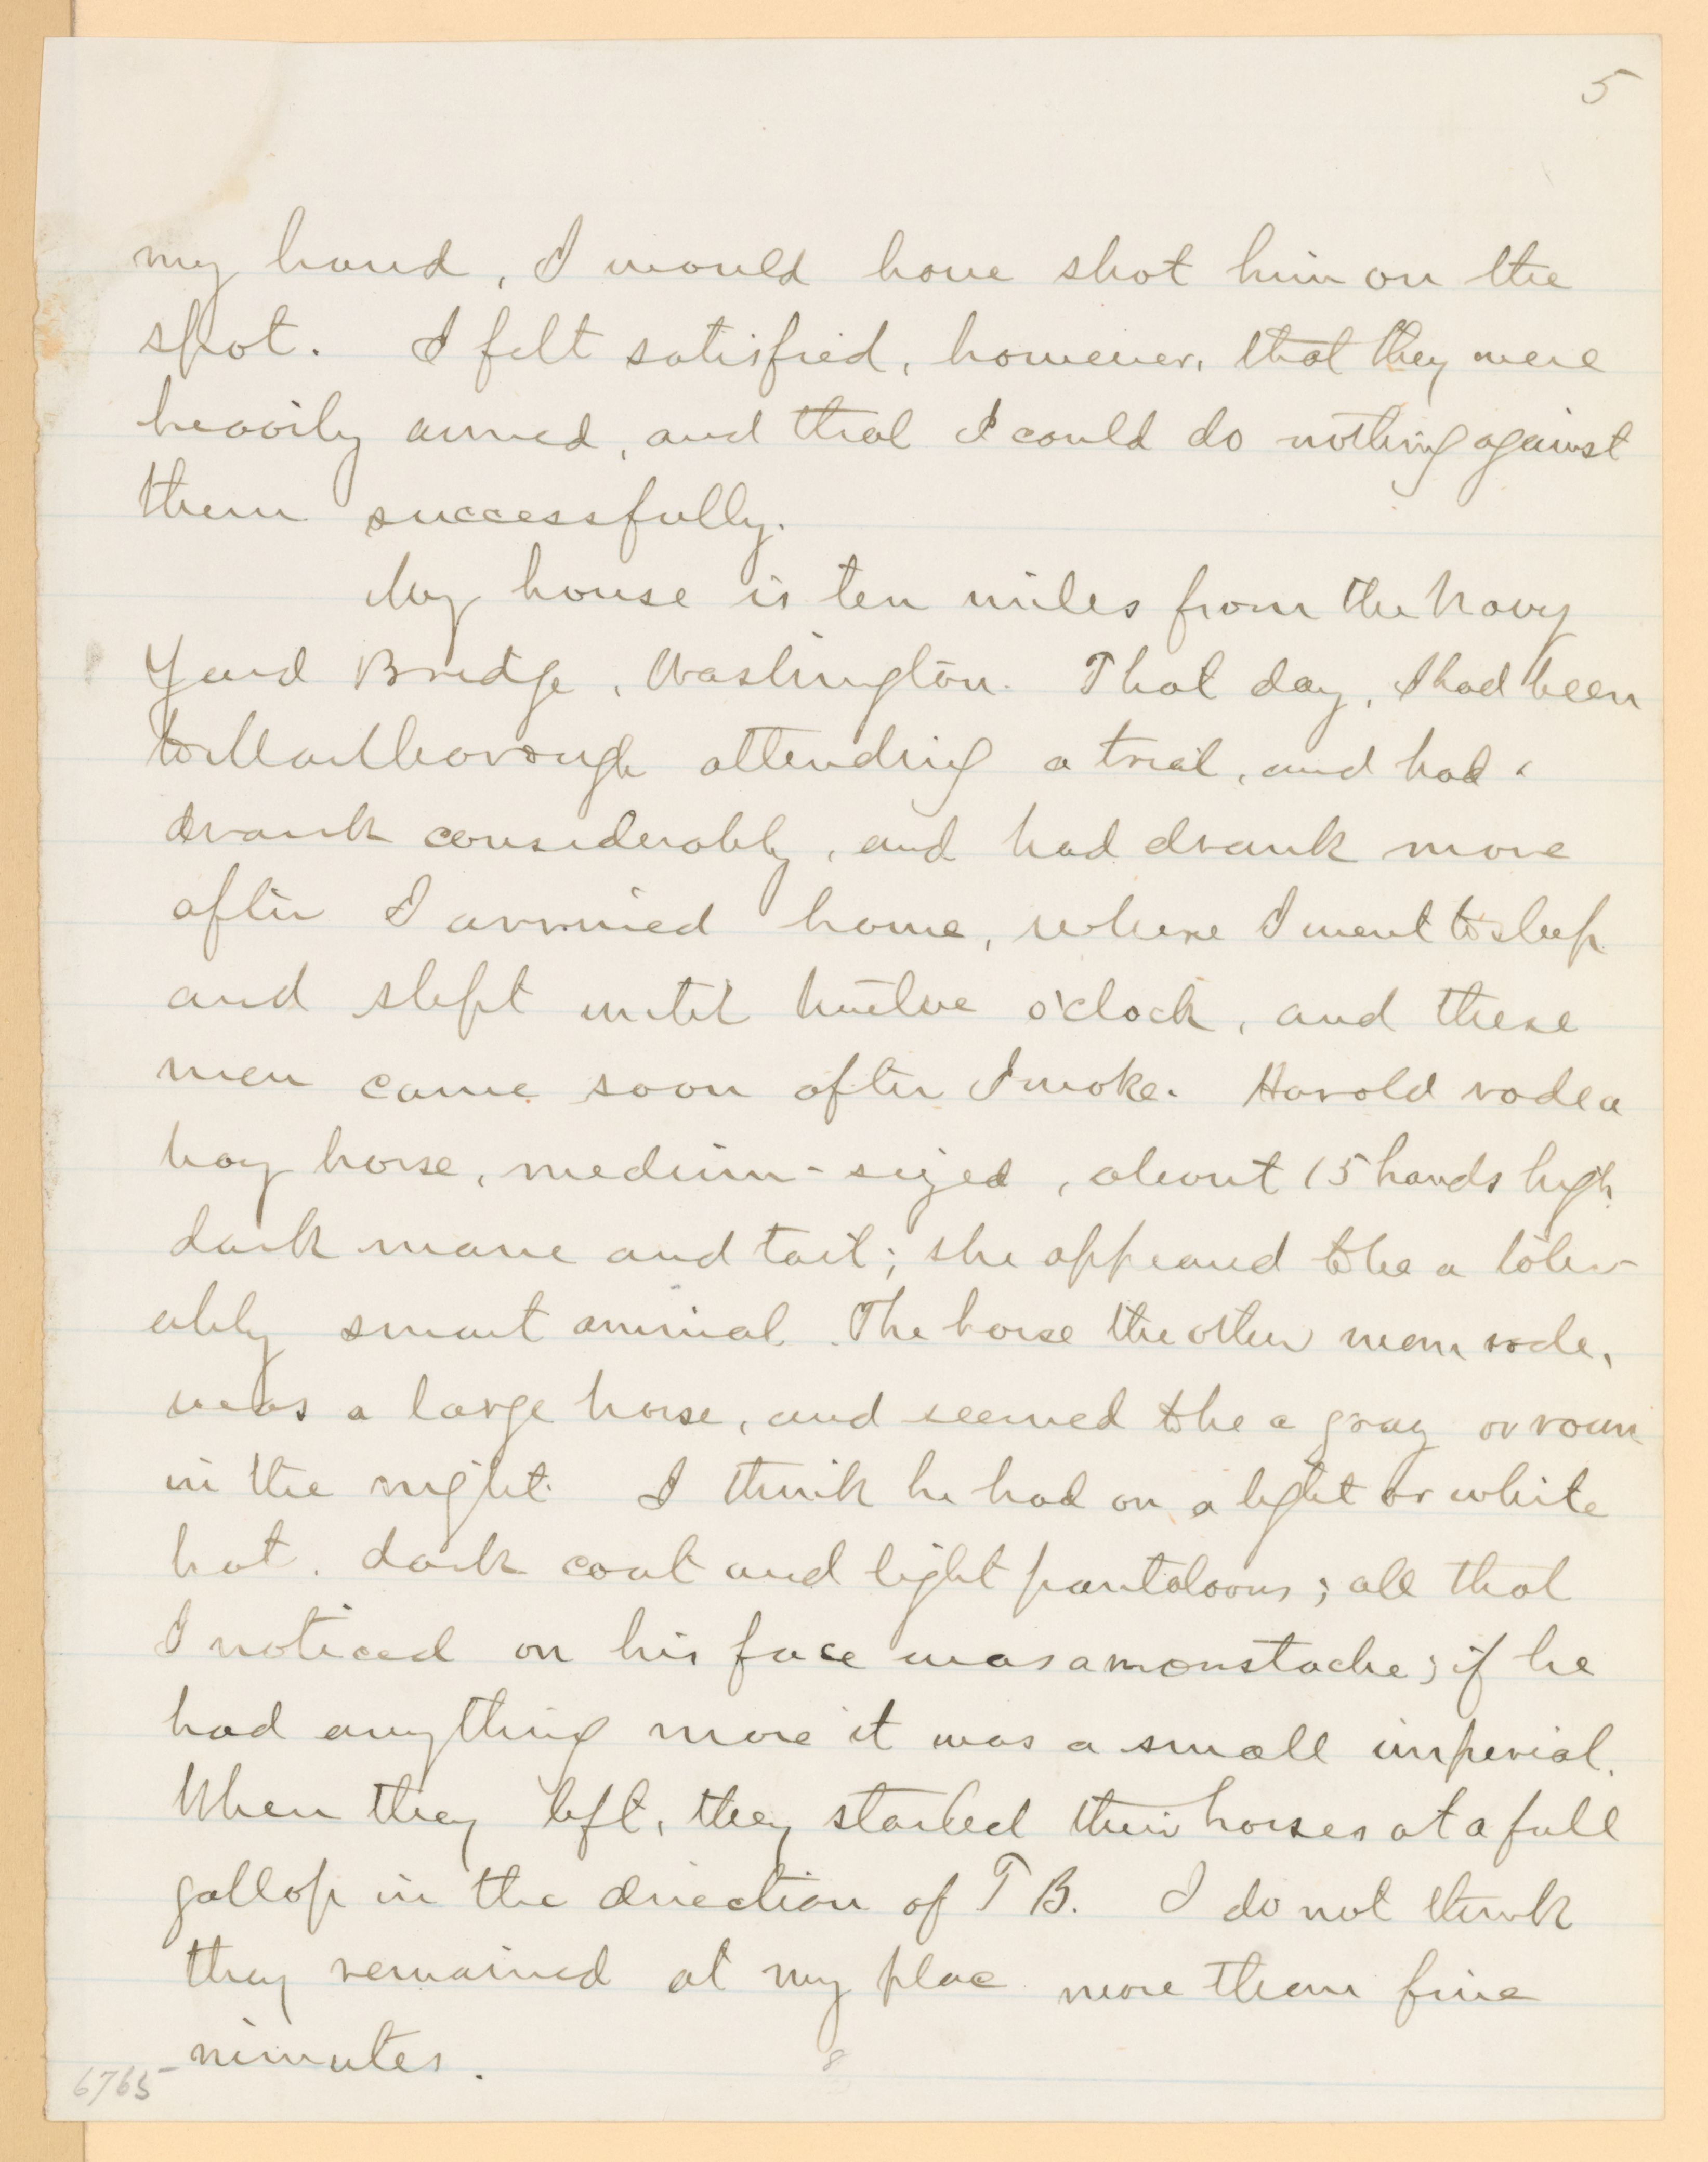 5
my hand, I would have shot him on the
spot. I felt satisfied, however, that they were
heavily armed, and that I could do nothing against
them successfully.
My house is ten miles from the Navy
Yard Bridge, Washington. That day, I had been
to Marlborough attending a trial, and had
drank considerably, and had drank more
after I arrived home, where I went to sleep
and slept until twelve o'clock, and these
men came soon after I woke. Harold rode a
bay horse, medium-sized, about 15 hands high,
dark mane and tail; she appeared to be a toler-
ably smart animal. The horse the other man rode,
was a large horse, and seemed to be a gray or roan
in the night. I think he had on a light or white
hat, dark coat and light pantaloons; all that
I noticed on his face was a moustache; if he
had anything more it was a small imperial.
When they left, they started their horses at a full
gallop in the direction of T B. I do not think
they remained at my place more than five
minutes.
8
6765